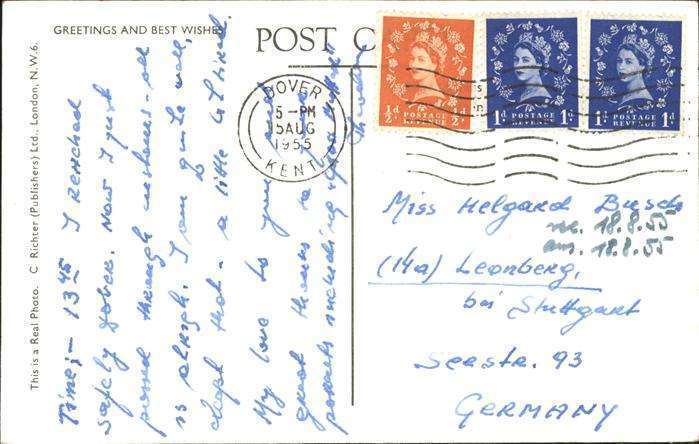 GREETINGS AND BEST WISHES
POST C
This is a Real Photo. C Richter (Publishers) Ltd., London, N.W.6.
DOVER
5-PM
15AUG
1955
KENT
½d ½d
POSTAGE REVENUE
1d 1d
POSTAGE REVENUE
1d 1d
POSTAGE REVENUE
Time;- 13 45 I reached
safely Dover. Now I just
passed through customs - all
is alright. I am quite well,
except that - a little tired.
My love to you and
great thanks to
parents including
Miss Helgard Busch
18.8.55
am. 18.8.55
(14a) Leonberg,
bei Stuttgart
Seestr. 93
GERMANY